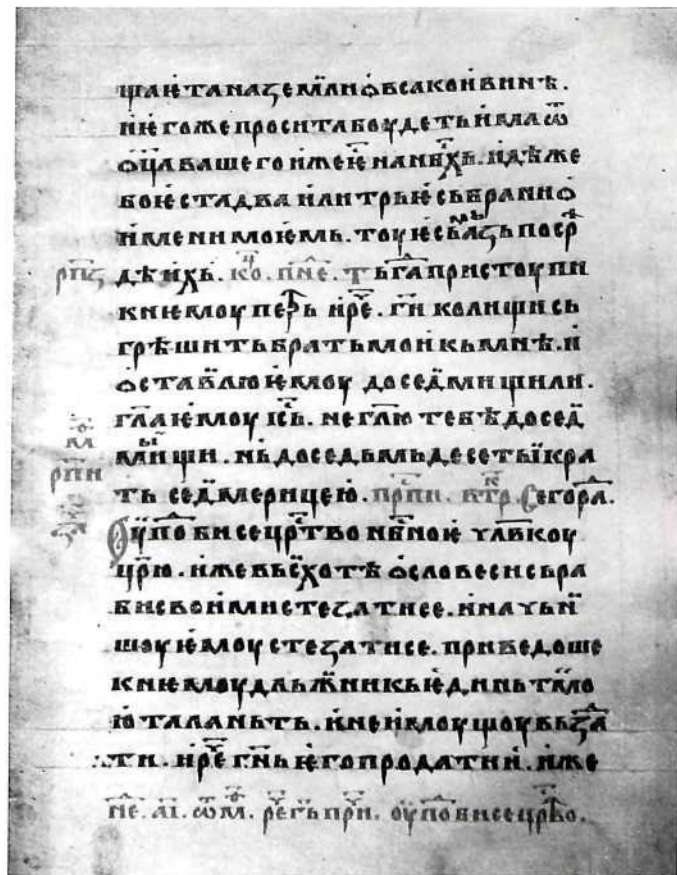 щаѥ́та на ꙁемл҄и ѡ҆ всакои в́инѣ.
и ѥгоже просита боудеть и҆ма ѿ
ѡ҆ц҃а вашего иже ѥ҆ на нб҃сх҄ь. идѣже
бо ѥ́ста два и҆ли триѥ сьбранни ѡ҆
и҆мени моѥ́мь. тоу ѥ́смь аꙁь посрѣ
рп҃ꙁ
дѣ и́хь. кѡ҃ц. пн҃е. Тьг҃а пристоупи
к нѥмоу петрь и҆ рⷱ҇е. г҃и колищи сь
грѣшить брать мои кь мнѣ. и҆
ѡ҆ставлю ѥ́моу до седми щи ли.
гл҃а ѥ́моу іс҃ь. не гл҃ю тебѣ до сед
мыи щи. нь до седьмь десеть ї кра
рп҃и
ть седмерицею. пр҃пп. втр. Сего ра.
Оуподⷪ҇би се црⷭ҇тво нбⷭ҇ноѥ члв҃коу
цр҃ю. и҆же вьсхотѣ ѡ҆ словеси сь ра
би свои́ми стеꙁати се. и҆ начьн
шоу ѥ́моу стеꙁати се. приведоше
к нѥмоу дльжникь ѥ́динь тмо
ю таланьть. и҆ не и́моущоу вьꙁда
ти. и҆ рⷱ҇е г҃нь ѥго продати и. и҆же
не. а҃і. ѿ м. реⷱ҇ г҃ь прⷮ҇чⷹ. оуподⷪ҇би се црⷭ҇тво.